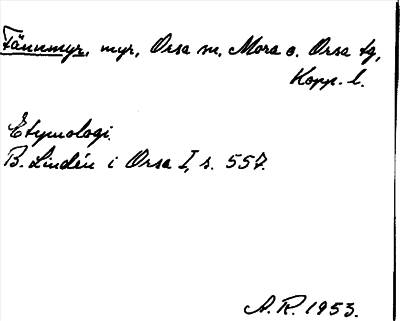 Fännmyr, myr, Orsa sn, Mora o. Orsa tg,
Kopp. l.
Etymologi.
B. Lindén i Orsa I, s. 557.
A.R. 1953.